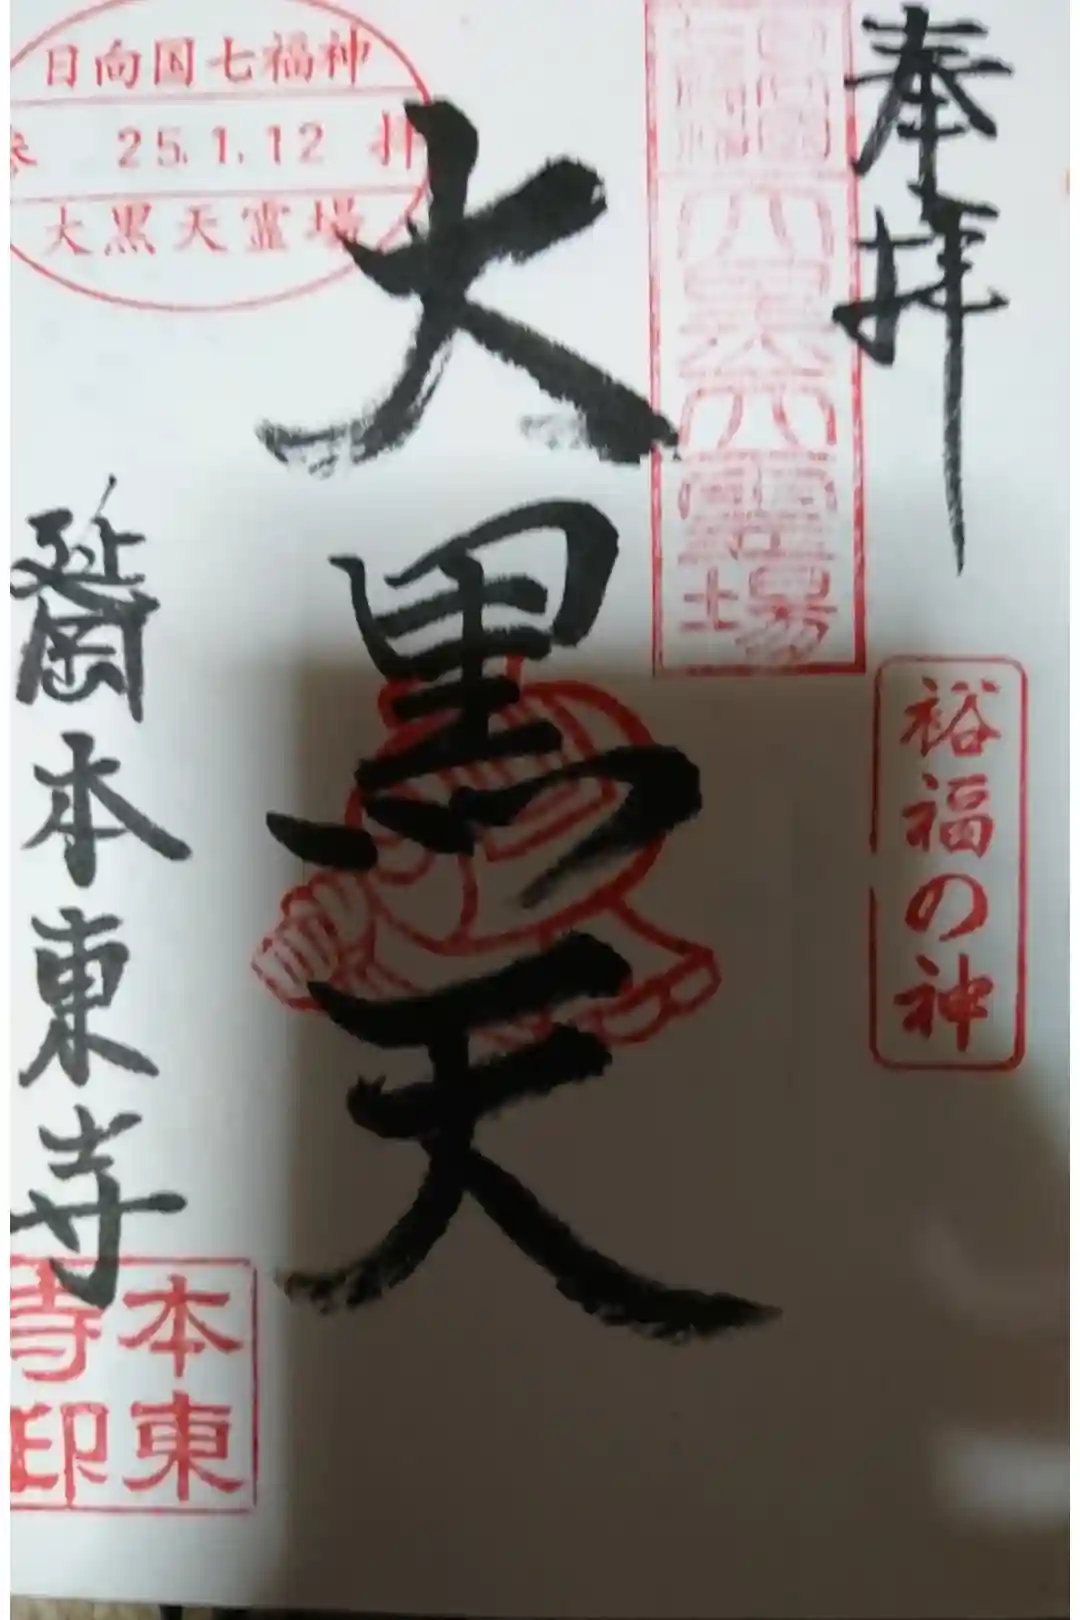 奉拝
裕福の神
大黒天霊場
大黒天
日向国七福神
25.1.12 拝
大黒天霊場
延岡本東寺
本東
寺印